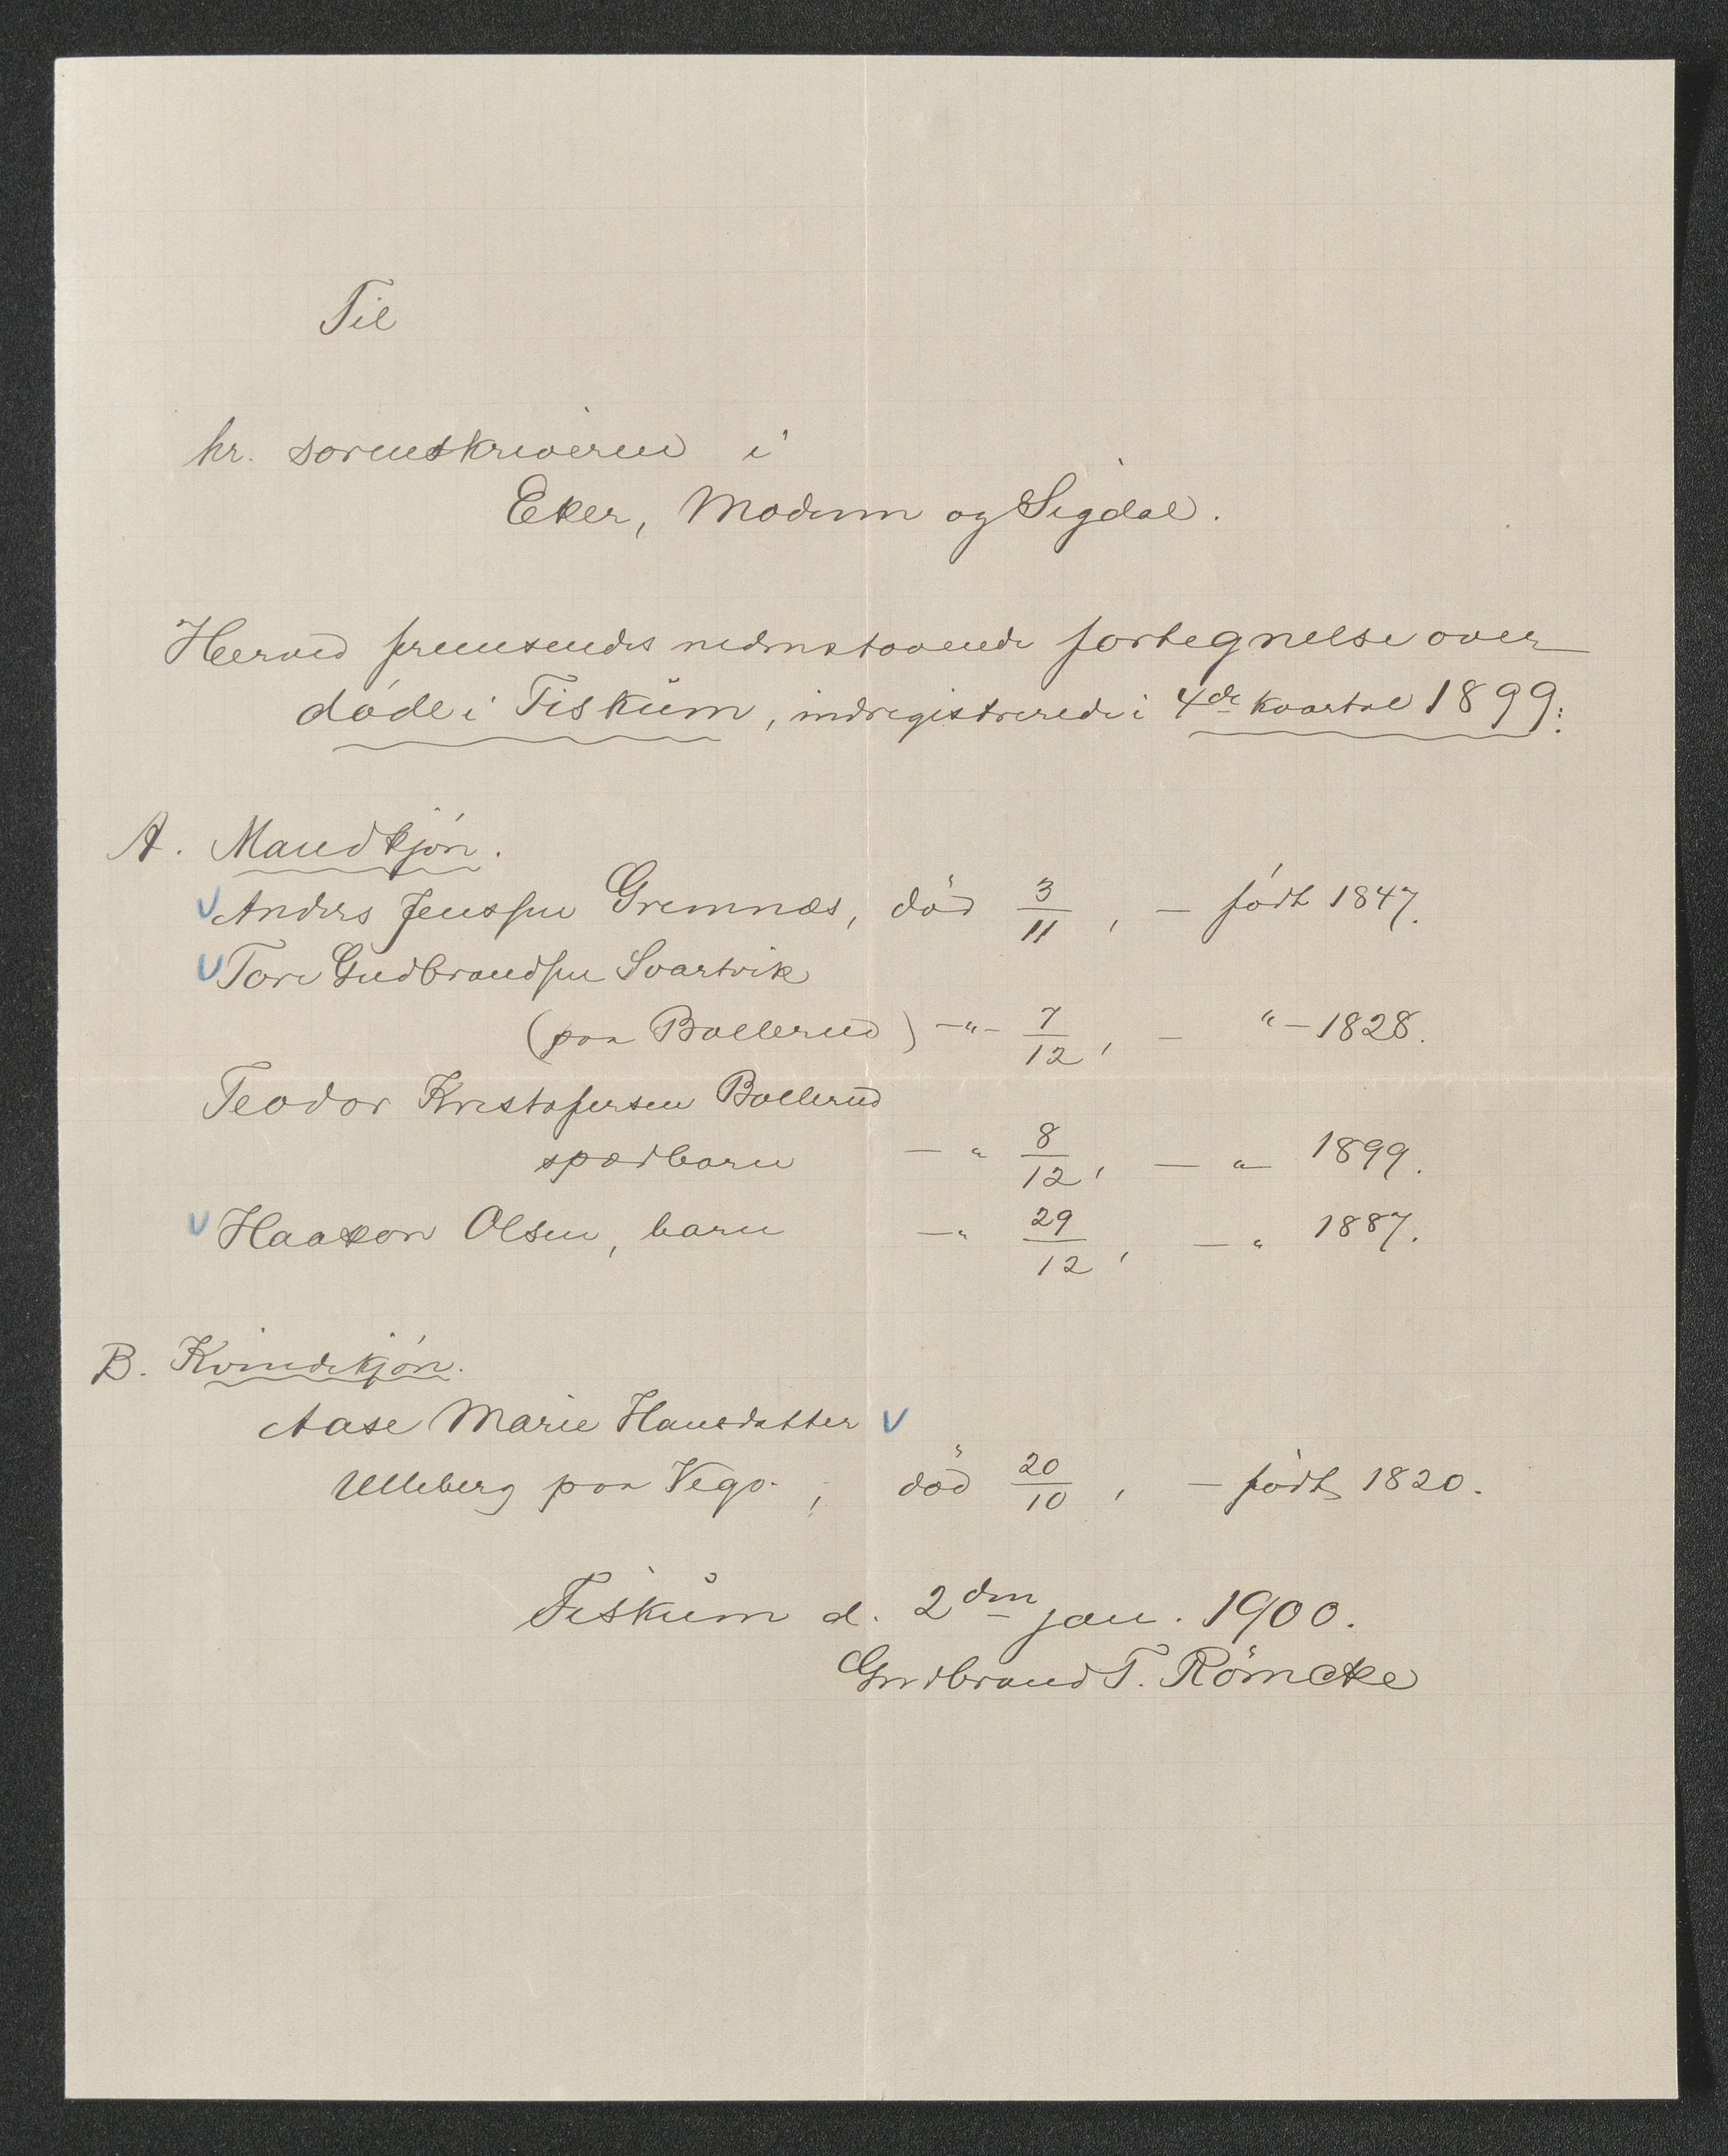 Til
hr. sorenskriveren i
Eker, Modum og Sigdal.
Herved fremsendes nedenstaaende fortegnelse over
døde i Fiskum, indregistrerede i 4de kvartal 1899:
A. Mandkjøn.
Anders Jenssen Gremnæs, død 3/11, — født 1847.
Tore Gudbrandsen Svartvik
(paa Bollerud) —"— 7/12, — "— 1828.
Teodor Kristofersen Bollerud
spædbarn — " 8/12, — " — 1899.
Haakon Olsen, barn — " 29/12, — " 1887.
B. Kvindekjøn.
Aase Marie Hansdatter
Ulleberg paa Vego, død 20/10, — født 1820.
Fiskum d. 2den jan. 1900.
Gudbrand T. Römcke